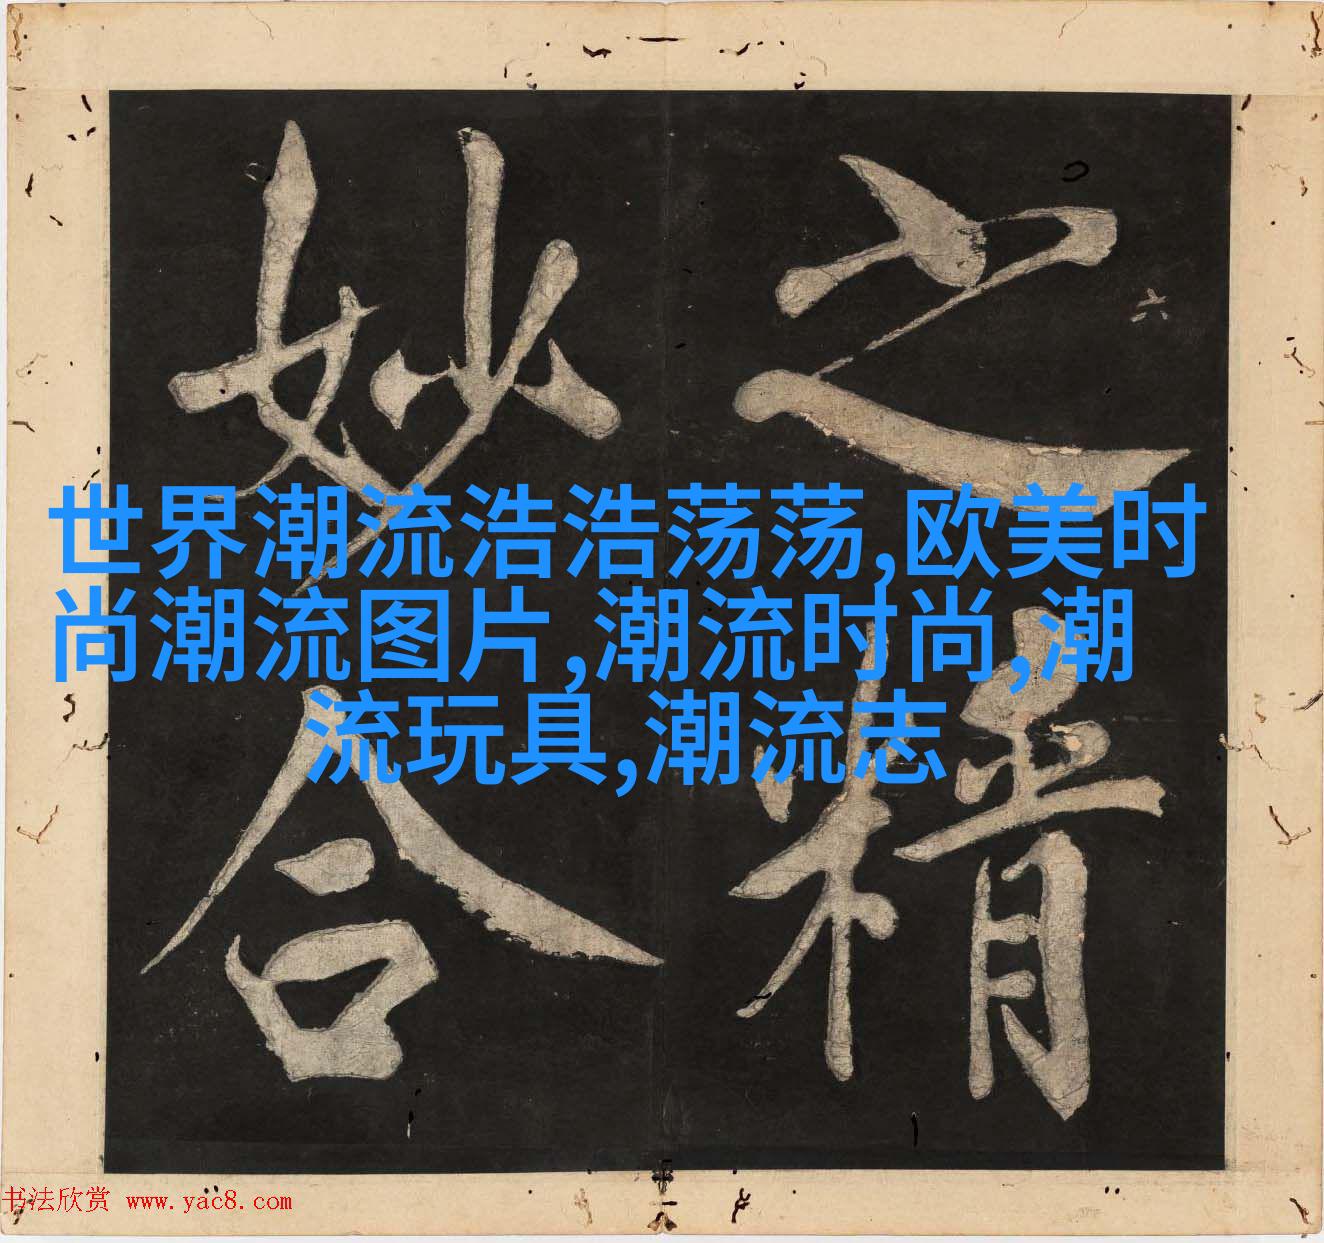 之精
妙合
六
世界潮流浩浩荡荡,欧美时
尚潮流图片,潮流时尚,潮
流玩具,潮流志
书法欣赏 www.yac8.com